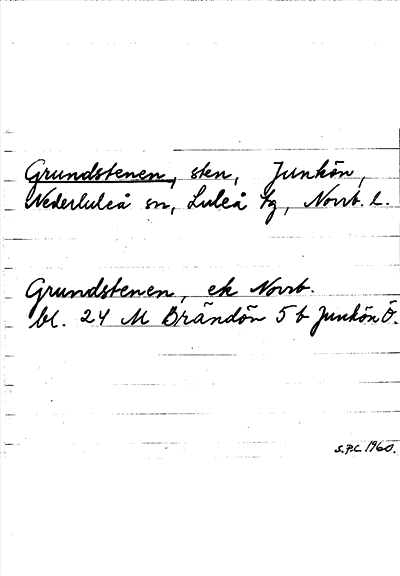 Grundstenen, sten, Junkön,
Nederluleå sn, Luleå tg, Norrb. l.
Grundstenen, ek Norrb.
bl. 24 M Brändön 5 b Junkön Ö.
S.P.C 1960.